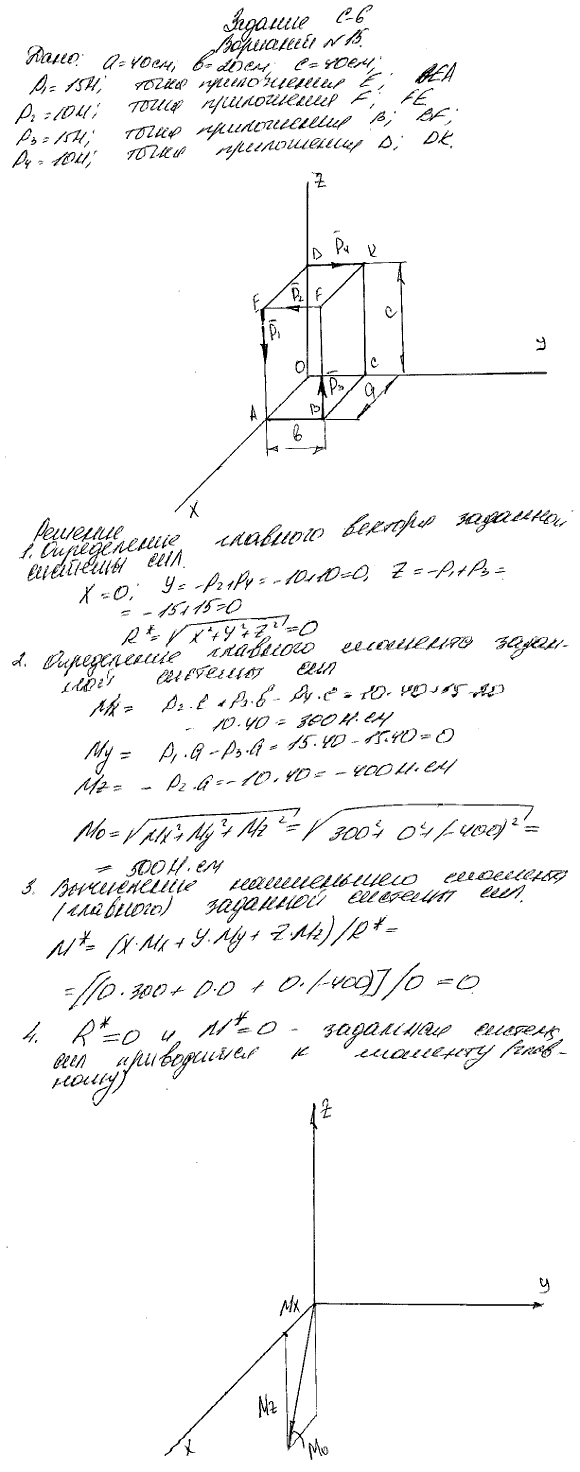 Задание С-6
Вариант №15.
Дано: a=40см; в=20см; c=40см;
P₁=15Н; точка приложения E; EA
P₂=10Н; точка приложения F; FE
P₃=15Н; точка приложения B; BF;
P₄=10Н; точка приложения D; DK.
Z
D P̄₄ K
E P̄₂ F
P̄₁ c
O P̄₃ C y
A B a
в
X
Решение
1. Определение главного вектора заданной
системы сил.
X=0; Y=-P₂+P₄=-10+10=0, Z=-P₁+P₃=
=-15+15=0
R*=√X²+Y²+Z²=0
2. Определение главного момента задан-
ной системы сил
Mx= P₂·c+P₃·в-P₄·c=10·40+15·20
-10·40=300Н·см
My= P₁·a-P₃·a=15·40-15·40=0
Mz= -P₂·a=-10·40=-400Н·см
M₀=√Mx²+My²+Mz²=√300²+0²+(-400)²=
=500Н·см
3. Вычисление наименьшего момента
(главного) заданной системы сил.
M*=(X·Mx+Y·My+Z·Mz)/R*=
=[(0·300+0·0+0·(-400)]/0=0
4. R*=0 и M*=0 - заданная система
сил приводится к моменту (глав-
ному)
Z
Mx y
Mz
X M₀